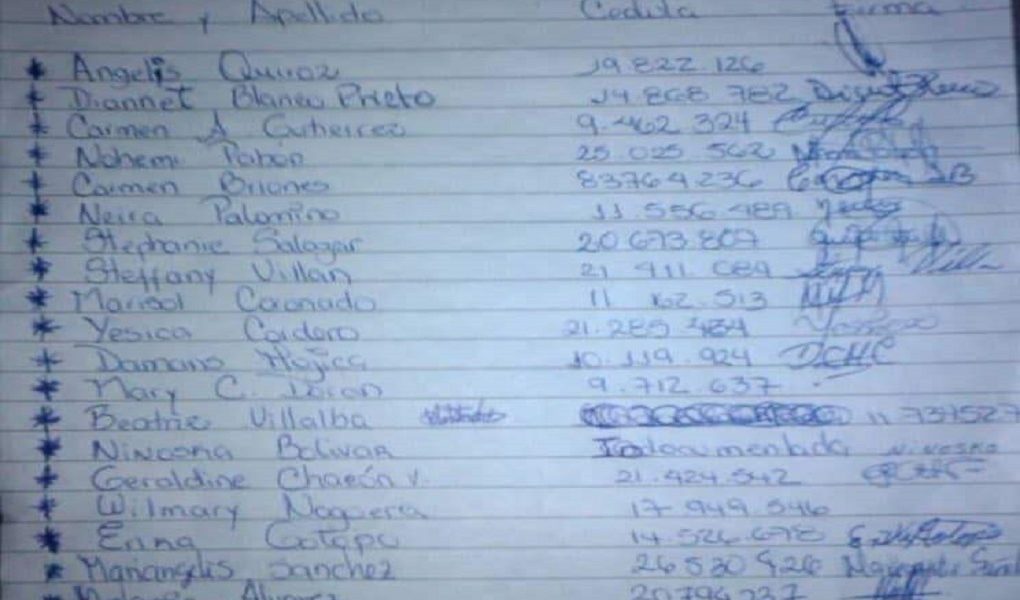 Nombre y Apellido Cedula Firma
* Angelis Quiroz 19.822.126
* Diannet Blanco Prieto 14.868.782
* Carmen A Gutierrez 9.462.324
* Nohemi Pabon 25.025.562
* Carmen Briones 83764236
* Neira Palomino 11.556.489
* Stephanie Salazar 20.673.807
* Steffany Villan 21.911.089
* Marisol Coronado 11 162.513
* Yesica Cordero 21.289.484
* Damano Mojica 10.119.924 DCHC
* Mary C. 9.712.637
* Beatric Villalba 11 737527
* Bolivar Indocumentada
* Geraldine Chacón V. 21.424.542
* Wilmary Nogueria 17.949.546
* Erina Cotapo 14.526.678
* Mariangelis Sanchez 26530926
Alvarez 20794737